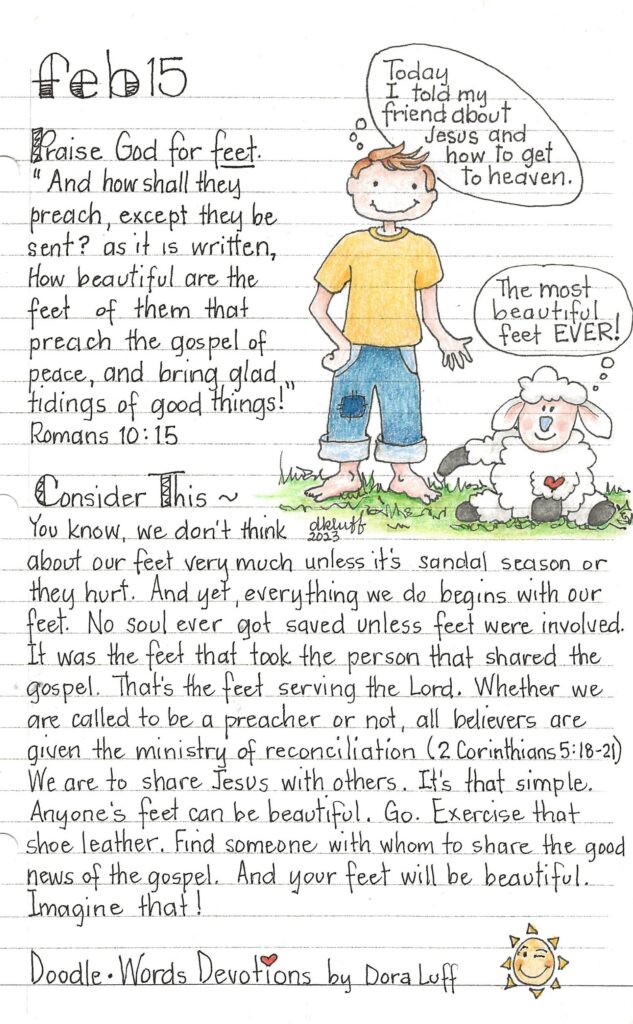 feb 15
Today
I told my
friend about
Jesus and
how to get
to heaven.
Praise God for feet.
"And how shall they
preach, except they be
sent? as it is written,
How beautiful are the
feet of them that
preach the gospel of
peace, and bring glad
tidings of good things!"
Romans 10:15
The most
beautiful
feet EVER!
Consider This ~
dkluff
2023
You know, we don't think
about our feet very much unless it's sandal season or
they hurt. And yet, everything we do begins with our
feet. No soul ever got saved unless feet were involved.
It was the feet that took the person that shared the
gospel. That's the feet serving the Lord. Whether we
are called to be a preacher or not, all believers are
given the ministry of reconciliation (2 Corinthians 5:18-21)
We are to share Jesus with others. It's that simple.
Anyone's feet can be beautiful. Go. Exercise that
shoe leather. Find someone with whom to share the good
news of the gospel. And your feet will be beautiful.
Imagine that!
Doodle • Words Devotions by Dora Luff